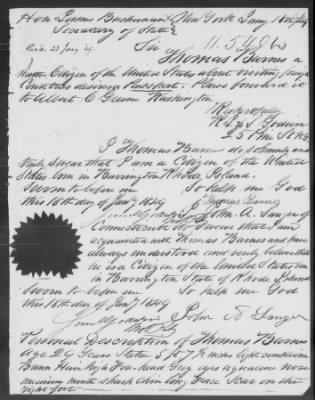 Hon James Buchanan New York Jany 18th/49
Secretary of State
Recd 23 Jany 49. Sir
Thomas Barnes a
Native Citizen of the United States about visiting foreign
Countries desires a Passport. Please forward it
to Albert C Greene Washington
Respectfully
25 Pine St NY
I Thomas Barnes do Solemnly and
truly swear that I am a Citizen of the United
States born in Barrington Rhode Island.
Sworn to before me So help me God
this 18th day of Jany 1849 Thomas Barnes
I John A. Sanger of
do Swear that I am
acquainted with Thomas Barnes and have
always understood and verily believe that
he is a Citizen of the United States born
in Barrington State of Rhode Island
Sworn to before me So help me God
this 18th day of Jany 1849
John A Sanger
Not Pub
Personal Description of Thomas Barnes
Age 29 Years Stature 5 ft 7 1/2 inches light complexion
Brown Hair high Fore-head Grey eyes aquiline nose
medium mouth sharp chin long Face Scar on the
right